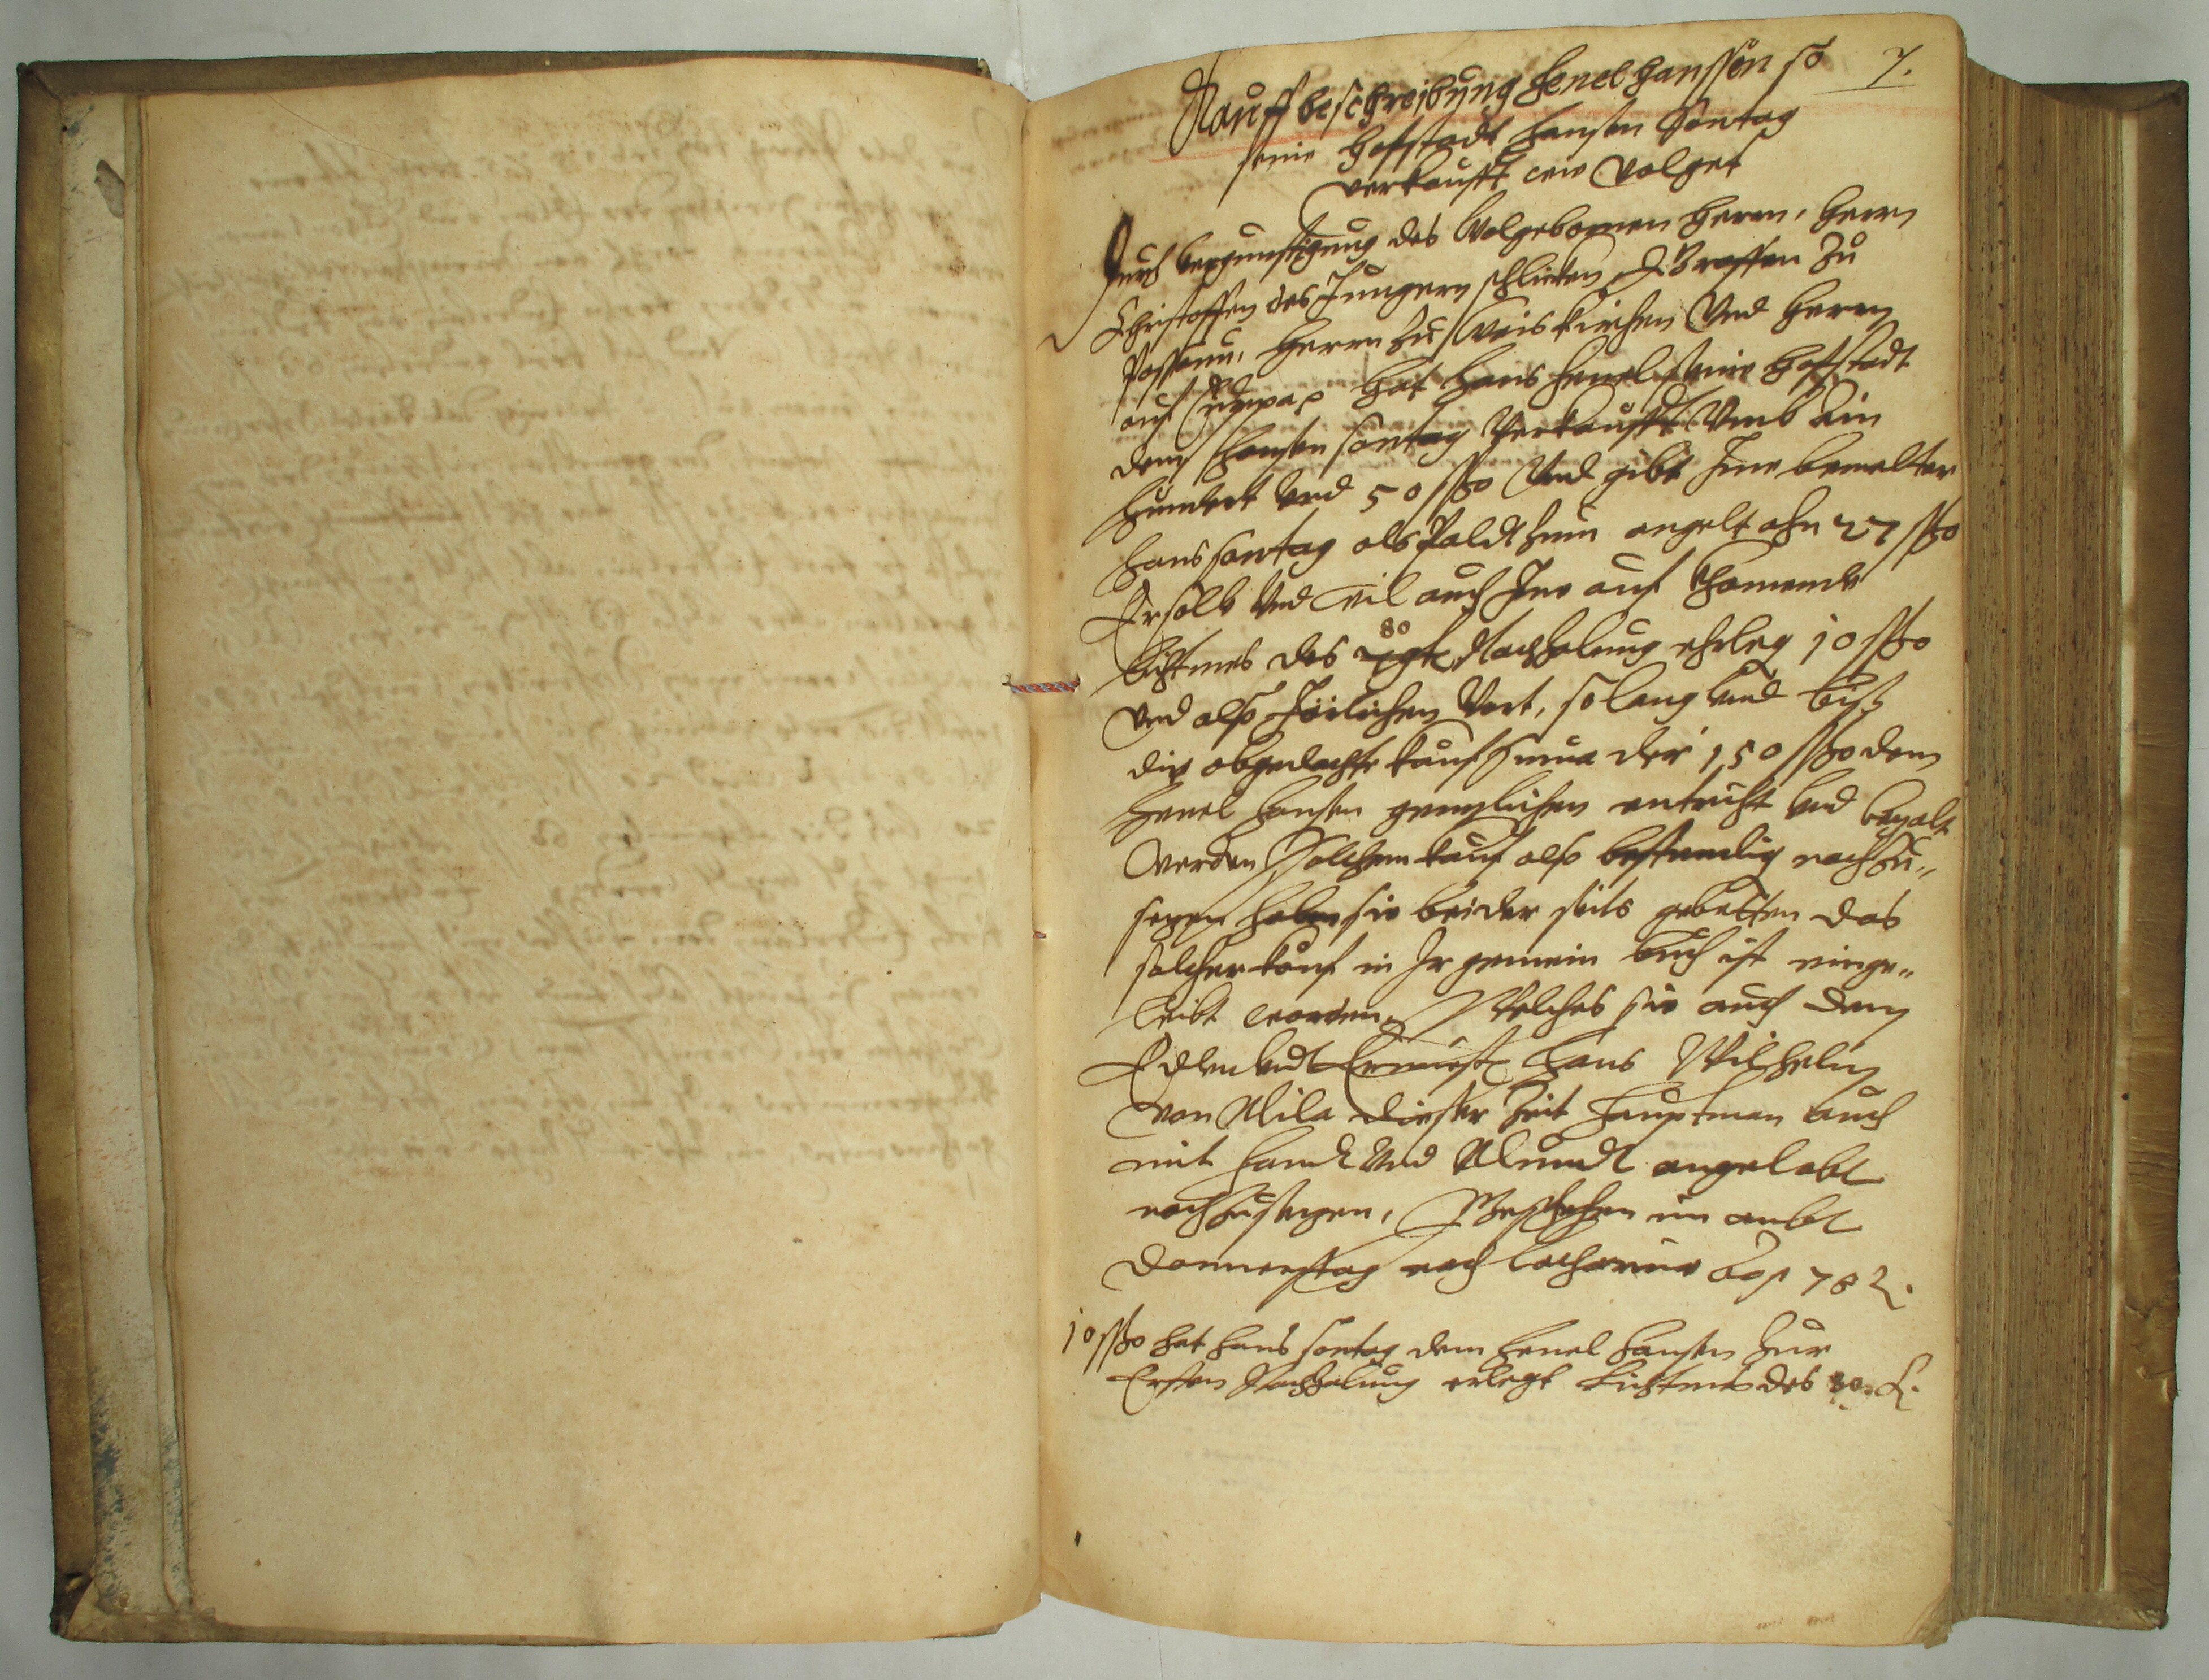 7.
Kauff beschreibung Henel Hanssen so
seine hoffstadt Hansen Sontag
verkaufft wie volget
Durch vergunstigung des Wolgebornen herrn, herrn
Christoffen des Jungern schlicken, Graffen zu
Passaun, herrn zu Weiskirchen Und herrn
auf hat Hans Henel seine hoffstadt
dem Hansen Sontag Verkaufft Umb Ein
hundert Vnd 50 ßo Und gibt Ime bemelter
Hans Sontag als Paldt hinn angelt ahn 27 ßo
Er soll Und wil auch Ime auf khomende
lichtmes des 80 Nachzalung ehrleg 10 ßo
Und also Järlichen Vort, so lang Und biß
die obgedachte kaufsuma der 150 ßo dem
Henel Hansen gentzlichen entricht Vnd bezalt
werden, Solchem kauf also bestendig nachzu„
setzen haben sie beider seits gebetten das
solcher kauf in Ir gemein buch ist einge„
leibt worden, Welches sie auch dem
Edlen Vndt Ernuest Hans Wilhelm
von Mila dieser Zeit Hauptman auch
mit handt Und Mundt angelobt
nachzusetzen, Geschehen im ambt
Donnerstag nach Catharina 78
10 ßo hat Hans Sontag dem Henel Hansen zur
Ersten Nachzalung erlegt Lichtmes des 80.